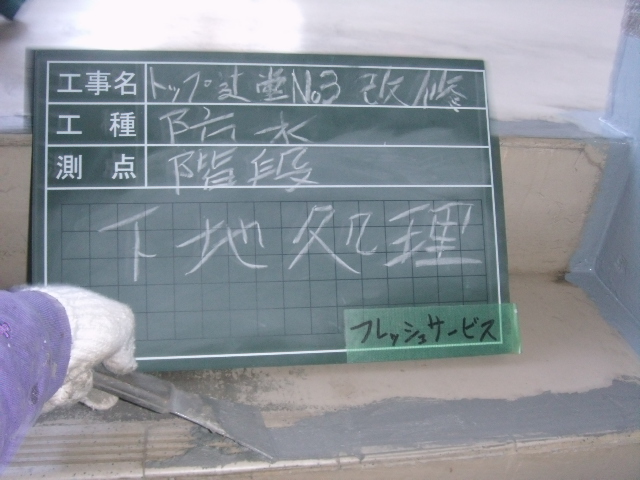 工事名 トップ辻堂No3 改修
工種 防水
測点 階段
下地処理
フレッシュサービス